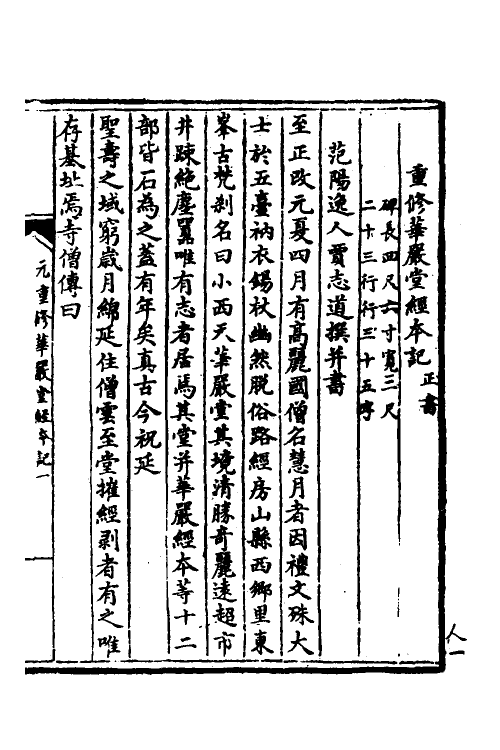 重修華嚴堂經本記 正書
碑長四尺六寸寬三尺
二十三行行三十五字
范陽逸人賈志道撰并書
至正改元夏四月有高麗國僧名慧月者因禮文殊大
士於五臺衲衣錫杖幽然脫俗路經房山縣西鄉里東
峯古梵剎名曰小西天華嚴堂其境清勝奇麗遠超市
井踈絕塵囂唯有志者居焉其堂并華嚴經本等十二
部皆石為之蓋有年矣真古今祝延
聖壽之域窮歲月綿延住僧雲至堂摧經剥者有之唯
存基址焉寺僧傳曰
元重修華嚴堂經本記一